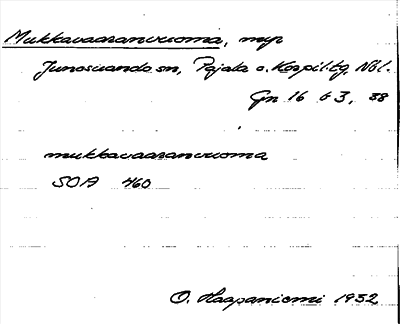 Mukkavaaranvuoma, myr
Junosuando sn, Pajala o. Korpil. tg, Nbl.
Gn 16 63, 88
mukkavaaranvuoma
SOA 460
O. Haapaniemi 1932